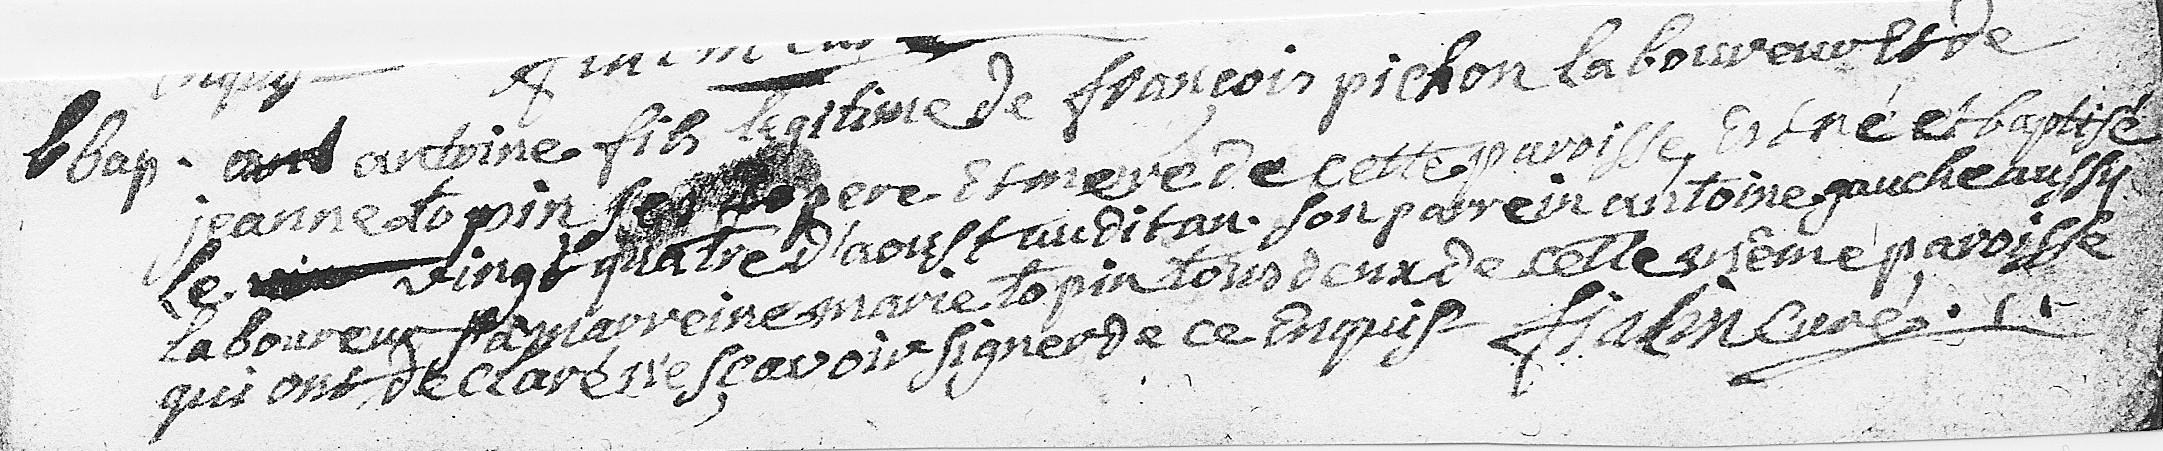 bap. antoine fils legitime de françois pichon laboureur Et de
jeanne topin ses pere Et mere de cette paroisse, Est né et baptisé
le vingt quatre d'aoust audit an. son parrein antoine gauche aussy
laboureur sa marreine marie topin tous deux de cette même paroisse
qui ont déclaré ne sçavoir signer de ce Enquis fialin Curé